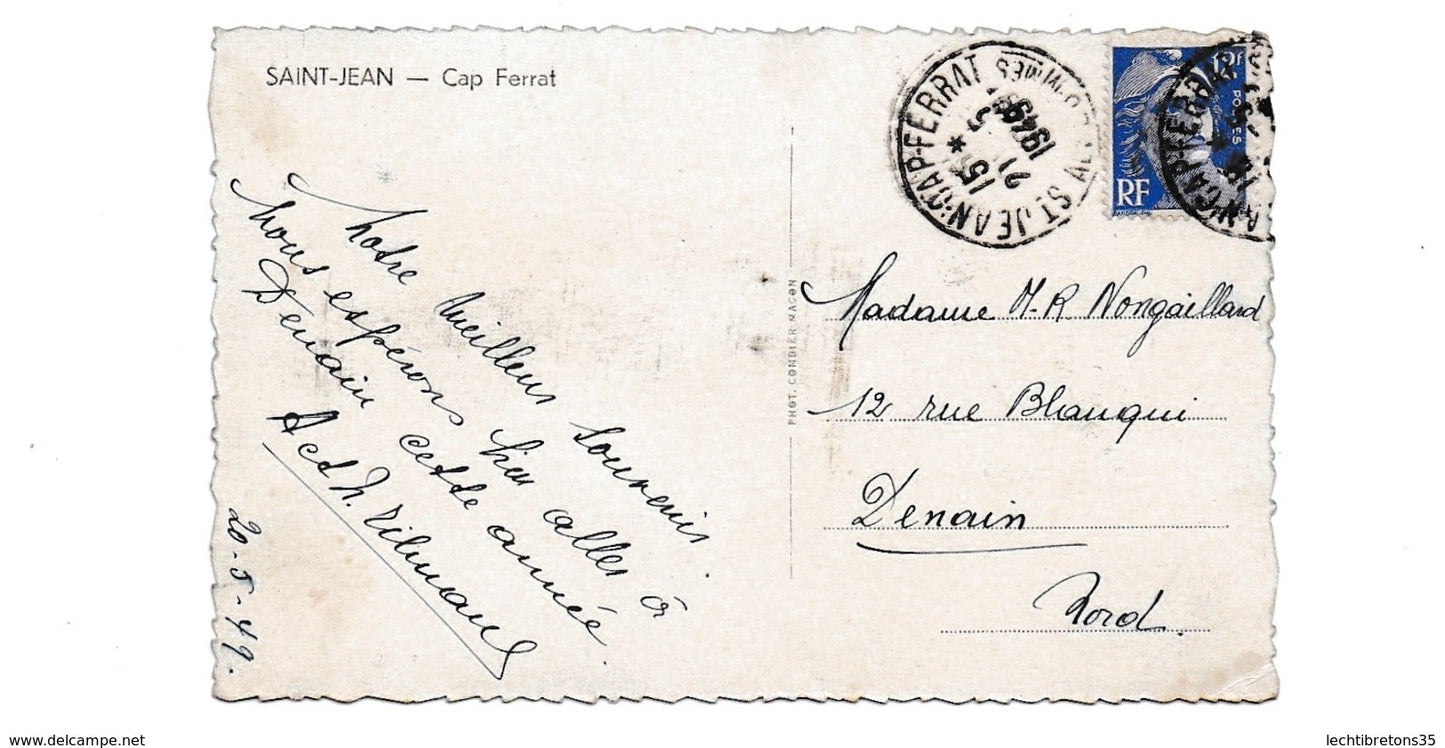 SAINT-JEAN — Cap Ferrat
Notre meilleur souvenir.
Nous espérons bien aller à
Denain cette année.
A et
20-5-49.
PHOT. COMBIER MACON
ST JEAN-CAP-FERRAT
15
21
5
1949
12F
POSTES
RF
Madame M.R. Nongaillard
12 rue Blanqui
Denain
Nord.
lechtibretons35